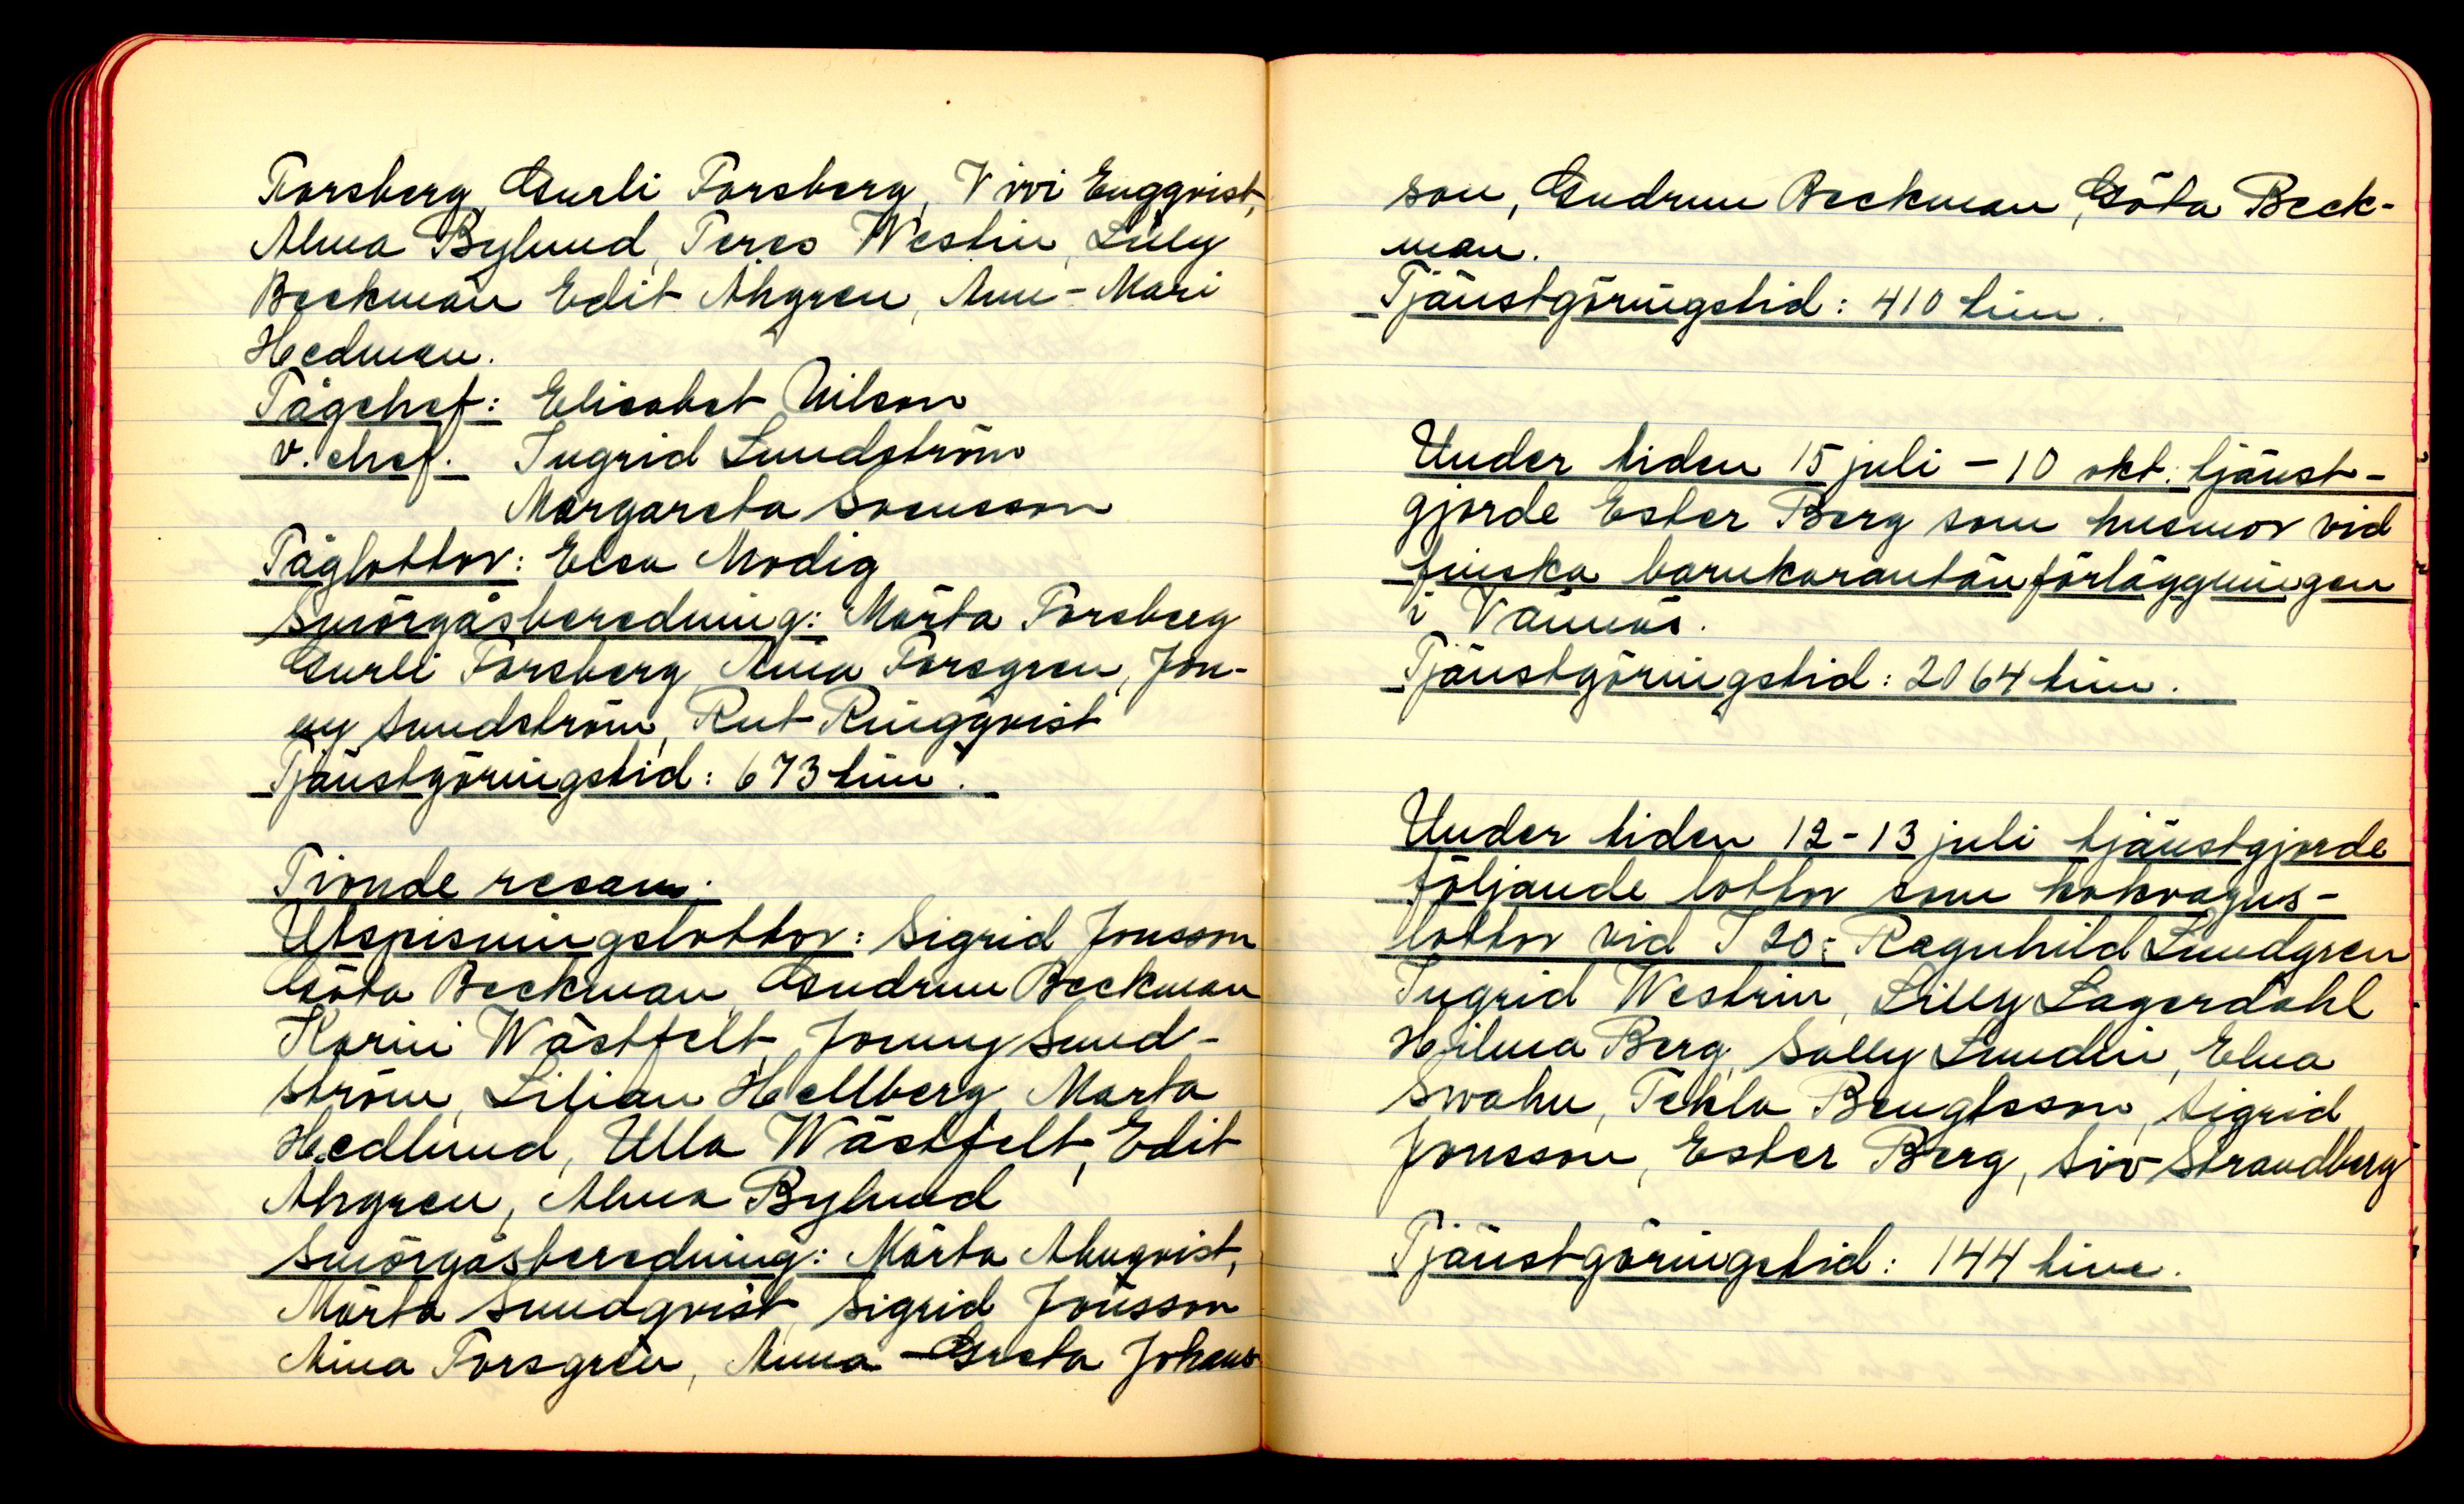 Forsberg, Gurli Forsberg, Vivi Engqvist,
Alma Bylund, Teres Westin, Lilly
Beckman Edit Åhgren, Ann-Mari
Hedman.
Tågchef: Elisabet Nilson
v. chef. Ingrid Lundström
Margareta Svensson
Tåglottor: Elsa Modig
Smörgåsberedning: Märta Forsberg
Gurli Forsberg, Mina Forsgren, Jon-
ny Sundström, Rut Ringqvist
Tjänstgöringstid: 673 tim.
Tionde resan.
Utspisningslottor: Sigrid Jonsson
Göta Beckman, Gudrun Beckman
Karin Wästfelt, Jonny Sund-
ström, Lilian Hellberg Marta
Hedlund, Ulla Wästfelt, Edit
Åhgren, Alma Bylund
Smörgåsberedning: Märta Almqvist,
Märta Sundqvist Sigrid Jonsson
Mina Forsgren, Anna-Greta Johans
son, Gudrun Beckman, Göta Beck-
man.
Tjänstgöringstid: 410 tim.
Under tiden 15 juli - 10 okt. tjänst-
gjorde Ester Berg som husmor vid
finska barnkarantänförläggningen
i Vännäs.
Tjänstgöringstid: 2064 tim.
Under tiden 12-13 juli tjänstgjorde
följande lottor som kokvagns-
lottor vid I 20: Ragnhild Lundgren
Ingrid Westrin, Lilly Lagerdahl
Hilma Berg, Sally Lundin, Elna
Swahn, Tekla Bengtsson, Sigrid
Jonsson, Ester Berg, Siv Strandberg
Tjänstgöringstid: 144 tim.